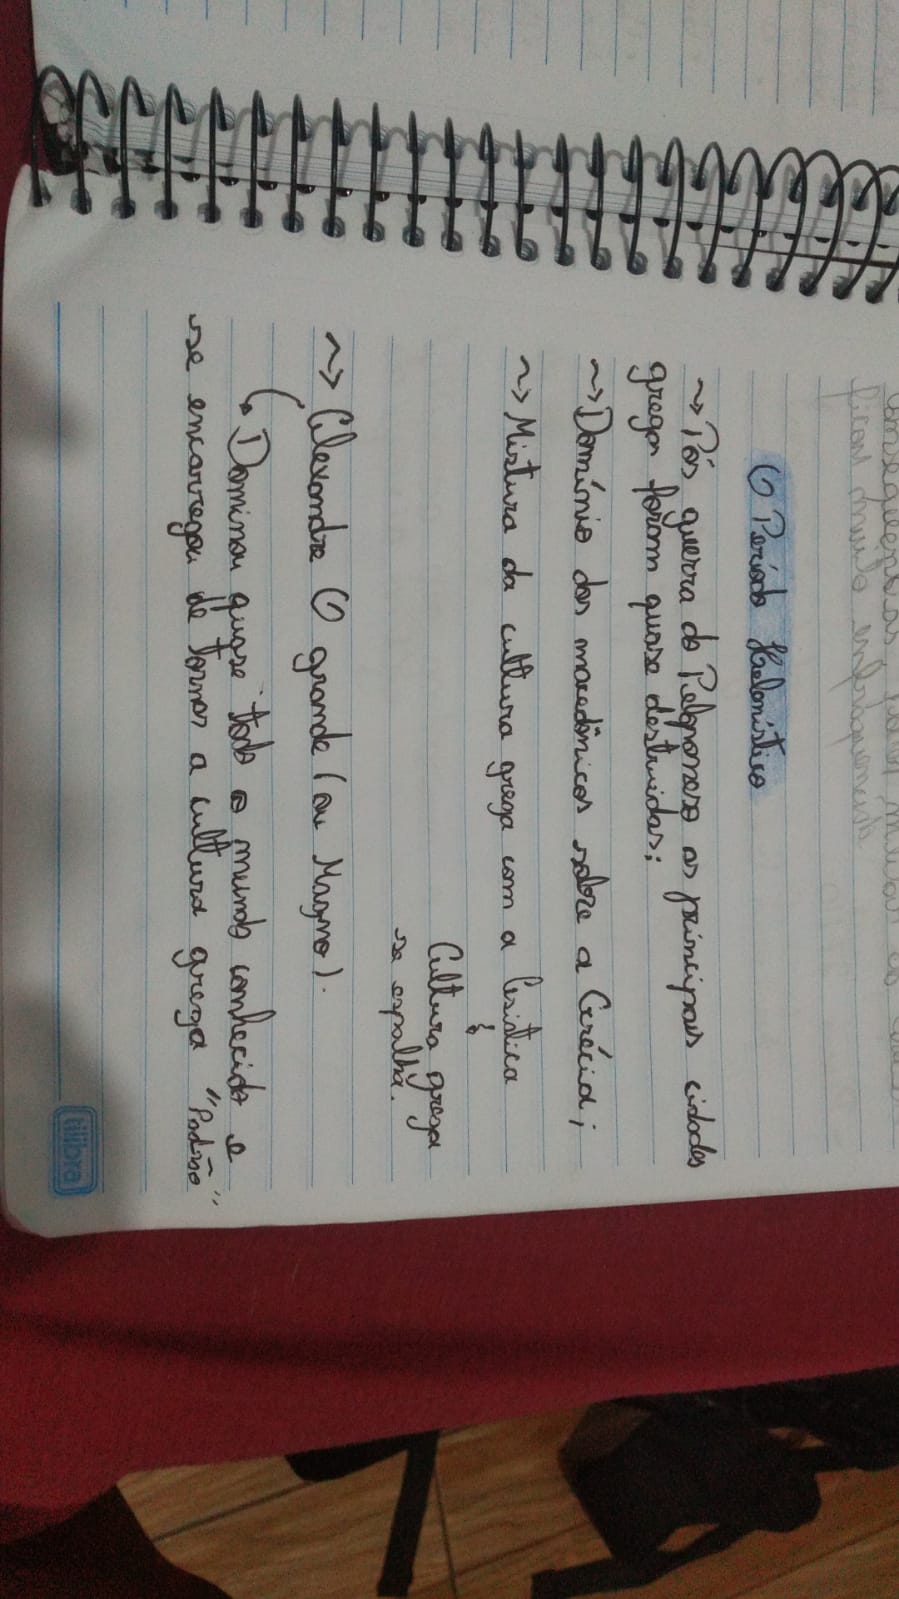 consequências, 
ficam muito enfraquecida
O Período Helenístico
~> Pós guerra do Peloponeso as principais cidades
gregas foram quase destruidas;
~> Domínio dos macedônicos sobre a Grécia;
~> Mistura da cultura grega com a Asiática
Cultura grega
se espalha.
~> Alexandre O grande (ou Magno).
Dominou quase todo o mundo conhecido e
se encarregou de tornar a cultura grega "Padrão"
tilibra